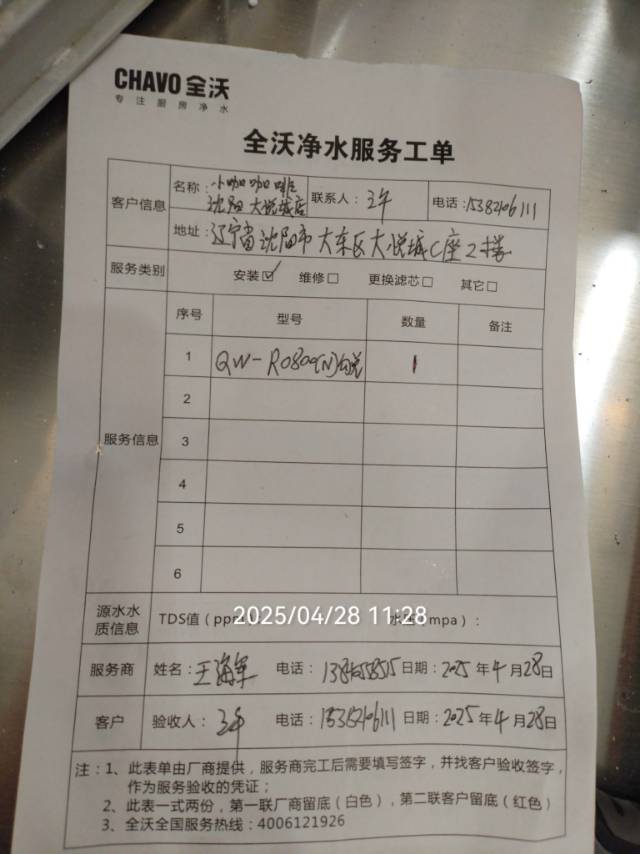 CHAVO 全沃
专注厨房净水
全沃净水服务工单
客户信息
名称：小咖咖啡
沈阳大悦城店
联系人：
电话：
地址：辽宁省沈阳市大东区大悦城C座2楼
服务类别 安装☑ 维修□ 更换滤芯□ 其它□
服务信息
序号 型号 数量 备注
1 QW-RO800(N) 1
2
3
4
5
6
源水水质信息 TDS值（ppm）： 水压（mpa）：
2025/04/28 11:28
服务商 姓名：王海军 电话： 日期：2025年4月28日
客户 验收人： 电话： 日期：2025年4月28日
注：1、此表单由厂商提供，服务商完工后需要填写签字，并找客户验收签字，
作为服务验收的凭证；
2、此表一式两份，第一联厂商留底（白色），第二联客户留底（红色）
3、全沃全国服务热线：4006121926